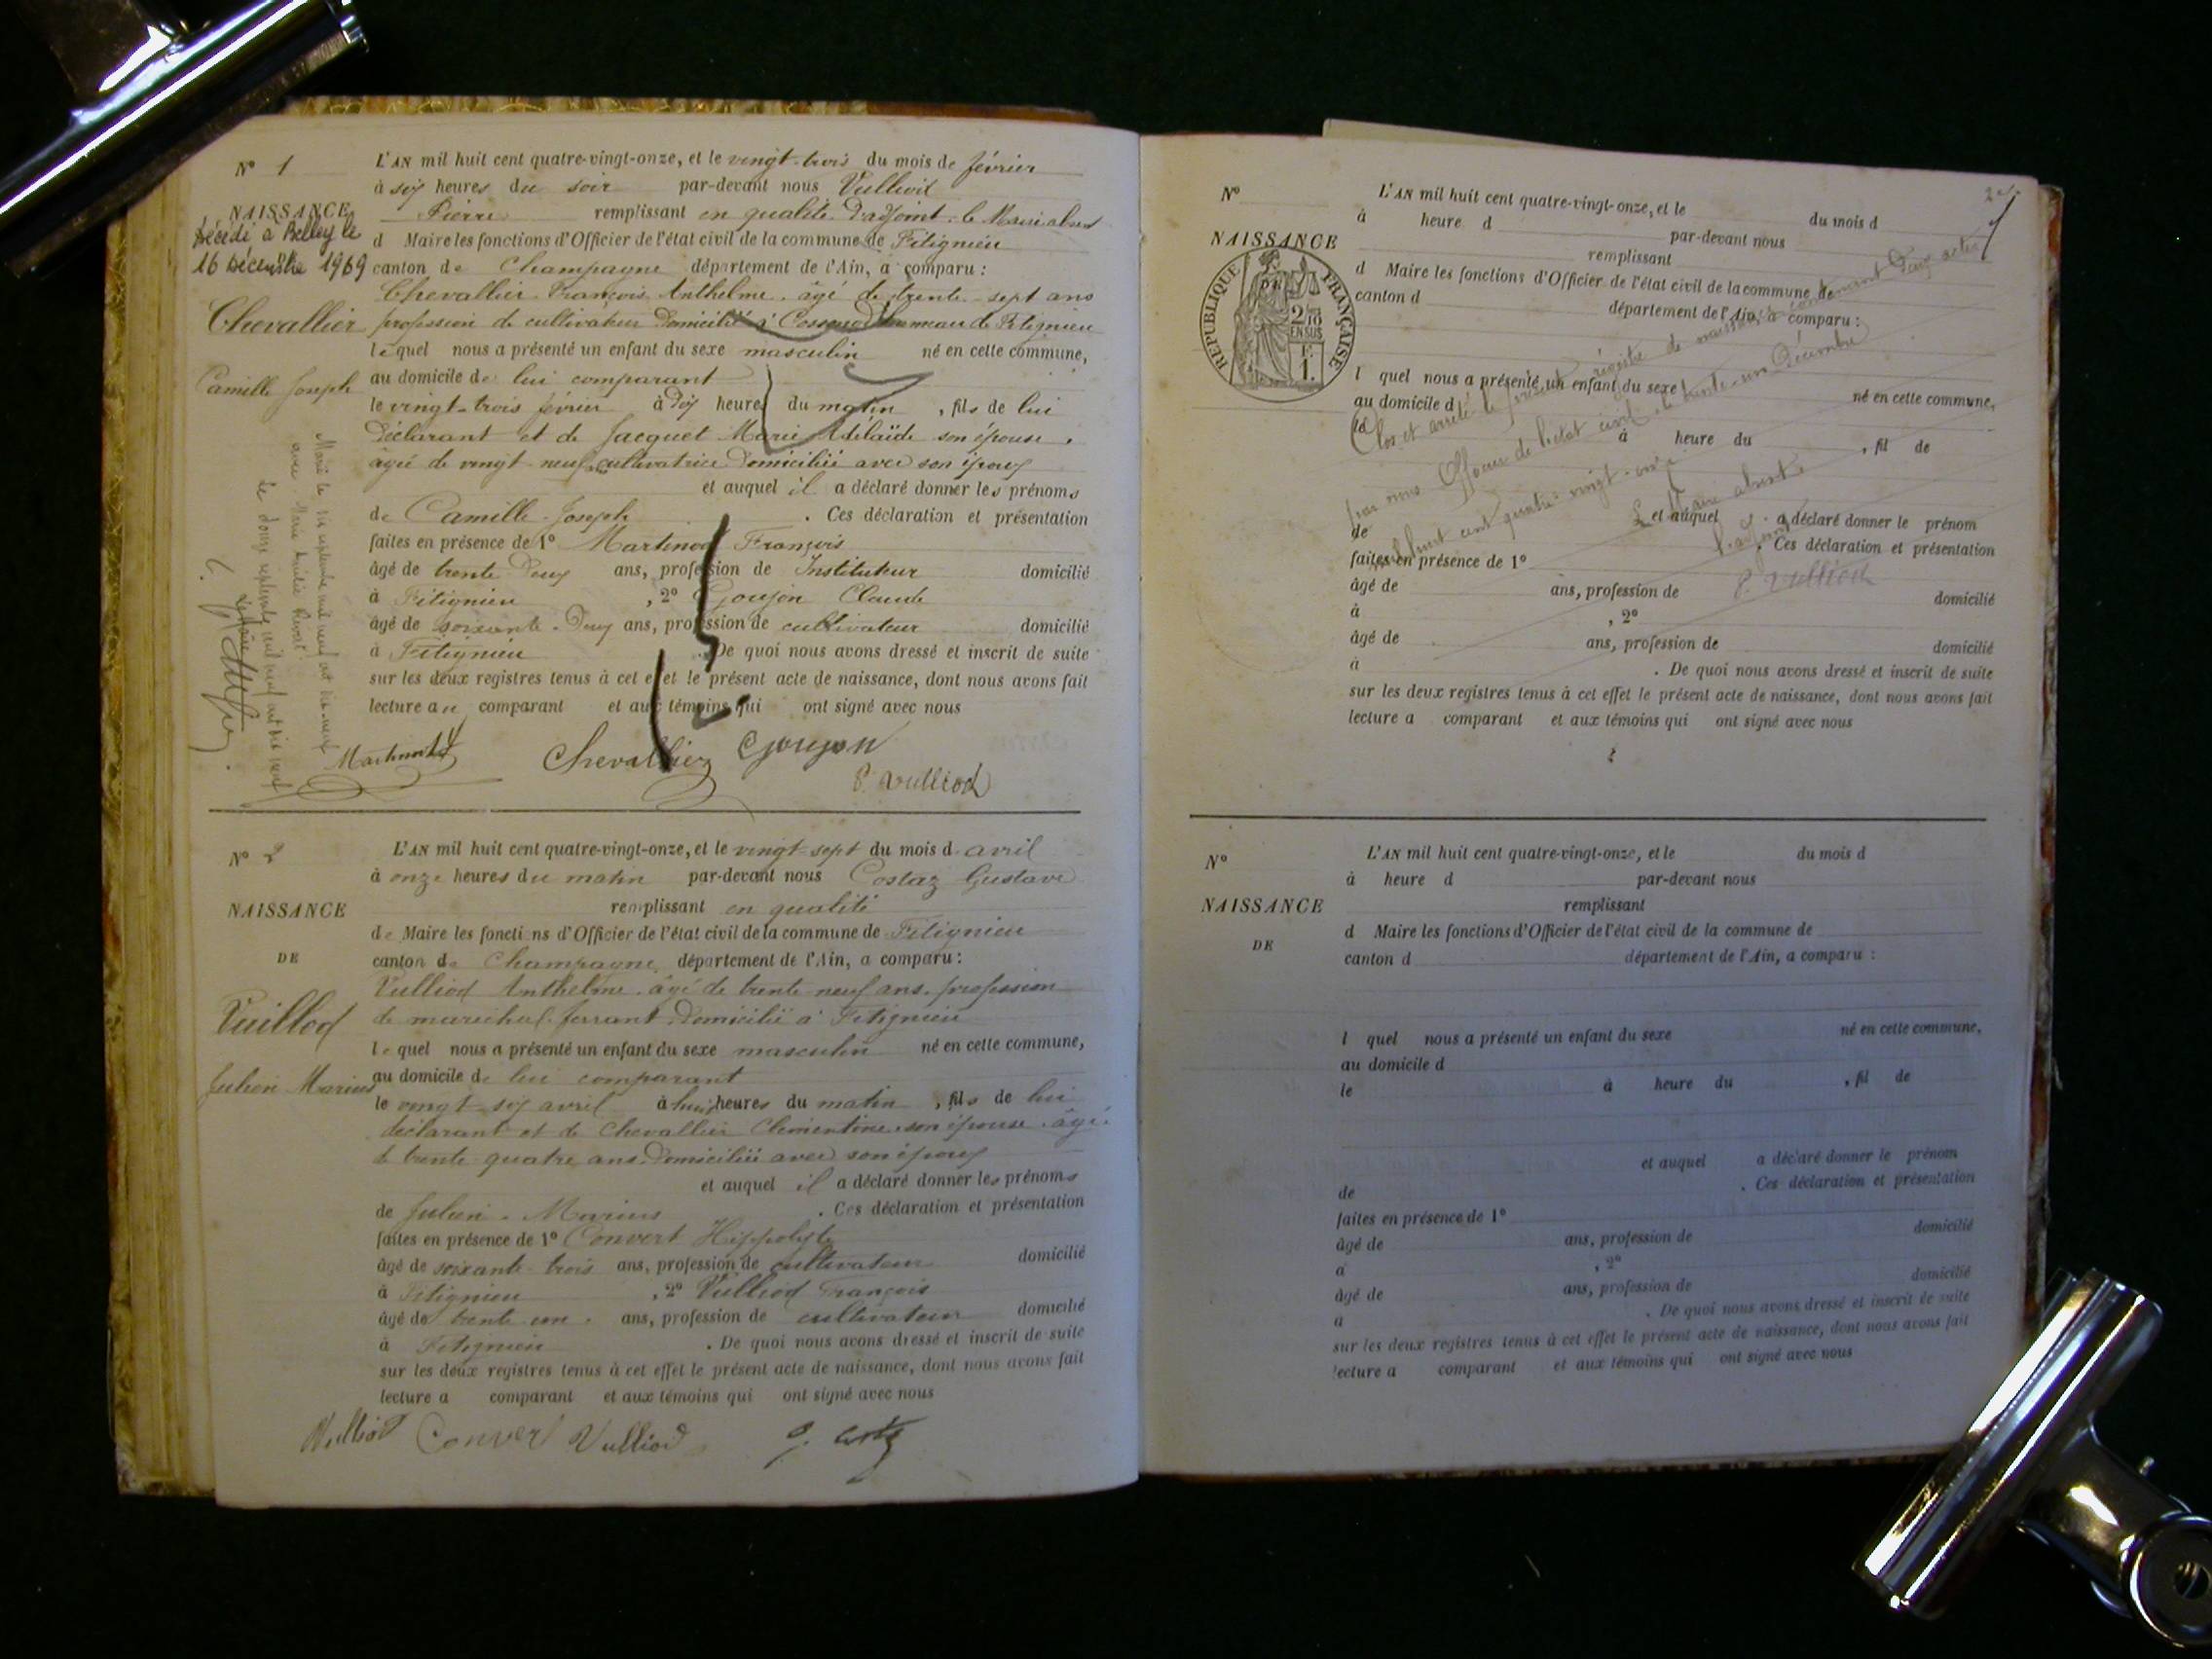 N° 1
L'AN mil huit cent quatre-vingt-onze, et le vingt-trois du mois de février
à six heures du soir par-devant nous Vulliod
NAISSANCE
Pierre remplissant en qualité d'adjoint, le Maire absent
Décédé à Belley le
d Maire les fonctions d'Officier de l'état civil de la commune de Fitignieu
16 Décembre 1969
canton de Champagne département de l'Ain, a comparu :
Chevallier François Anthelme, âgé de trente-sept ans
Chevallier
profession de cultivateur domicilié à hameau de Fitignieu
lequel nous a présenté un enfant du sexe masculin né en cette commune,
Camille Joseph
au domicile de lui comparant
le vingt-trois février à dix heures du matin, fils de lui
déclarant et de Jacquet Marie Adélaïde son épouse,
âgée de vingt-neuf cultivatrice domiciliée avec son époux
et auquel il a déclaré donner les prénoms
de Camille-Joseph. Ces déclaration et présentation
faites en présence de 1° Martinod François
âgé de trente-deux ans, profession de Instituteur domicilié
à Fitignieu, 2° Goujon Claude
âgé de soixante-deux ans, profession de cultivateur domicilié
à Fitignieu. De quoi nous avons dressé et inscrit de suite
sur les deux registres tenus à cet effet le présent acte de naissance, dont nous avons fait
lecture au comparant et aux témoins qui ont signé avec nous
Marié le six septembre mil neuf cent dix-neuf
avec Marie
Le douze septembre mil neuf cent dix neuf
Le Maire
Martinod Chevallier Goujon
P. Vulliod
N° 2
L'AN mil huit cent quatre-vingt-onze, et le vingt-sept du mois d avril
à onze heures du matin par-devant nous Costaz Gustave
NAISSANCE
remplissant en qualité
de Maire les fonctions d'Officier de l'état civil de la commune de Fitignieu
DE
canton de Champagne département de l'Ain, a comparu :
Vulliod Anthelme, âgé de trente-neuf ans, profession
Vuillod
de maréchal-ferrant, domicilié à Fitignieu
lequel nous a présenté un enfant du sexe masculin né en cette commune,
Julien Marius
au domicile de lui comparant
le vingt-six avril à huit heures du matin, fils de lui
déclarant et de Chevallier Clémentine, son épouse, âgée
de trente-quatre ans, domiciliée avec son époux
et auquel il a déclaré donner les prénoms
de Julien-Marius. Ces déclaration et présentation
faites en présence de 1° Convert Hippolyte
âgé de soixante-trois ans, profession de cultivateur domicilié
à Fitignieu, 2° Vulliod François
âgé de trente un ans, profession de cultivateur domicilié
à Fitignieu. De quoi nous avons dressé et inscrit de suite
sur les deux registres tenus à cet effet le présent acte de naissance, dont nous avons fait
lecture a comparant et aux témoins qui ont signé avec nous
Vulliod Convert Vulliod G. Costaz
N°
L'AN mil huit cent quatre-vingt-onze, et le du mois d
à heure d par-devant nous
NAISSANCE
remplissant
DE
d Maire les fonctions d'Officier de l'état civil de la commune de
canton d département de l'Ain, a comparu :
RÉPUBLIQUE FRANÇAISE
2/10
EN SUS
F.
1.
l quel nous a présenté un enfant du sexe né en cette commune,
au domicile d
le à heure du, fil de
et auquel a déclaré donner le prénom
de. Ces déclaration et présentation
faites en présence de 1°
âgé de ans, profession de domicilié
à, 2°
âgé de ans, profession de domicilié
à. De quoi nous avons dressé et inscrit de suite
sur les deux registres tenus à cet effet le présent acte de naissance, dont nous avons fait
lecture a comparant et aux témoins qui ont signé avec nous
Clos et arrêté le présent registre de naissances contenant deux actes
par nous Officier de l'état civil le trente-un Décembre
mil huit cent quatre-vingt-onze
Le Maire absent
l'adjoint
P. Vulliod
N°
L'AN mil huit cent quatre-vingt-onze, et le du mois d
à heure d par-devant nous
NAISSANCE
remplissant
DE
d Maire les fonctions d'Officier de l'état civil de la commune de
canton d département de l'Ain, a comparu :
l quel nous a présenté un enfant du sexe né en cette commune,
au domicile d
le à heure du, fil de
et auquel a déclaré donner le prénom
de. Ces déclaration et présentation
faites en présence de 1°
âgé de ans, profession de domicilié
à, 2°
âgé de ans, profession de domicilié
à. De quoi nous avons dressé et inscrit de suite
sur les deux registres tenus à cet effet le présent acte de naissance, dont nous avons fait
lecture a comparant et aux témoins qui ont signé avec nous